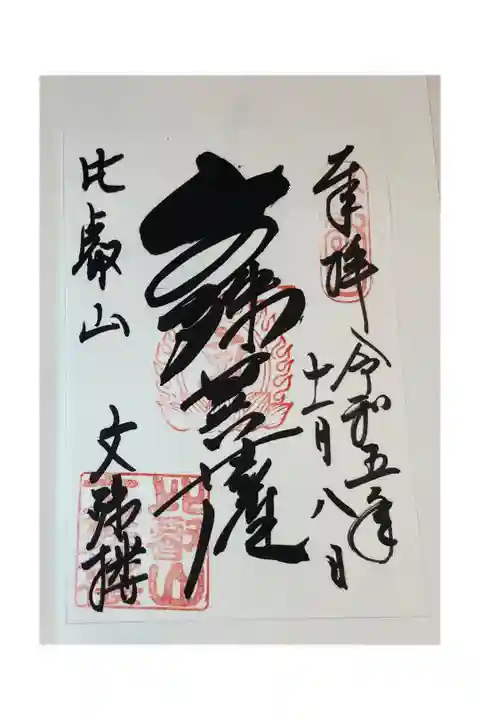 奉拝
令和五年
十一月八日
文殊菩薩
比叡山
文殊楼